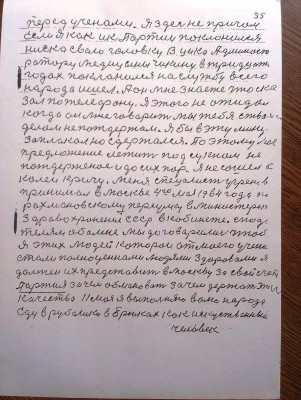 35
перед учеными. Я здесь не причем
если я как ик Партии поклонился
низко свою головку В цика Админист
ратору медицины Чикину в тридцати
годах поклонился на службу всего
народа шел. А он мне знаете что ска
зал по телефону. Я этого не ожидал
когда он мне говорит мы тебя ства и
делом не поддержал. Я бы в эту минуту
заплакал но сдержался. По этому мое
предложение летит под сукном не
подтержаное и до сих пор. Я не пошел а
колел к врачу. Меня специалист ученый
принимал в Москве 4го мая 1964 года по
рахмановскому переулку в министерст
Здравоохронения СССР в кобинете. с пода
телям больные мы договорились чтоб
я этих людей которои от моего учени
стали полноценными людьми здоровыми я
должен их представить в Москву за свой счет
Партия зачем обманывать зачем держать эти
качества 11 мая я выполняю волю народа
еду в рубашки в брюках как искуственный
человек